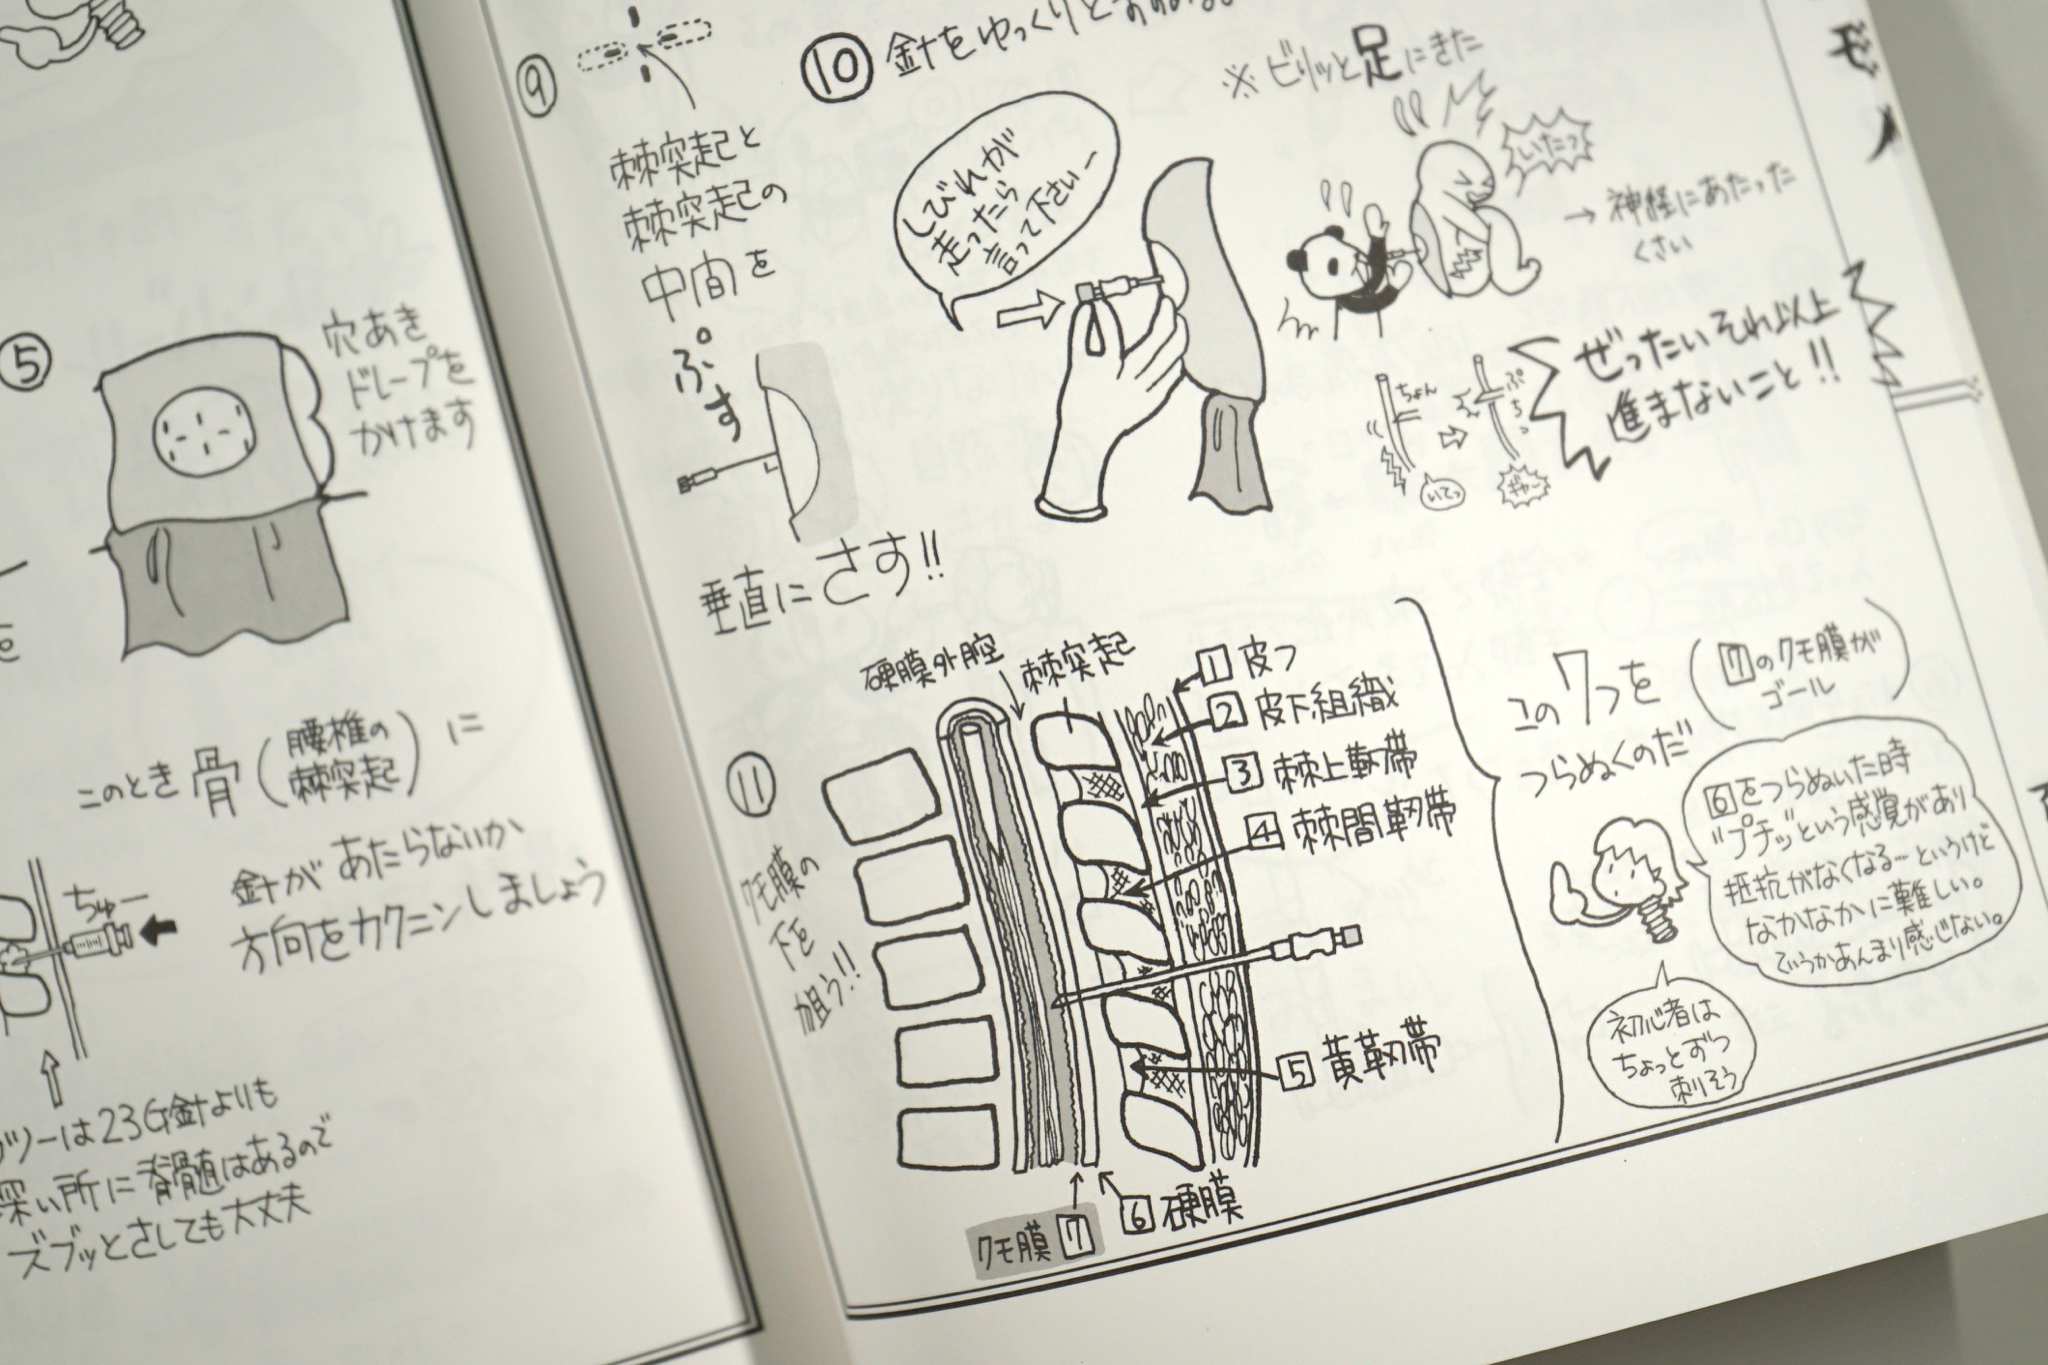 ⑤
穴あき
ドレープを
かけます
このとき 骨(腰椎の棘突起)に
針が あたらないか
方向をカクニンしましょう
ちゅー
ツーは23G針よりも
深い所に脊髄はあるので
ズブッとさしても大丈夫
⑨
棘突起と
棘突起の
中間を
ぷす
垂直に さす!!
⑩ 針をゆっくりと
しびれが
走ったら
言って下さいー
※ビリッと足にきた
いたっ
→神経にあたった
くさい
ちょん
ぷちっ
いてっ
ギャー
ぜったいそれ以上
進まないこと!!
⑪
クモ膜の
下を
狙う!!
硬膜外腔
棘突起
1 皮フ
2 皮下組織
3 棘上靭帯
4 棘間靭帯
5 黄靭帯
6 硬膜
クモ膜 7
この7つを
つらぬくのだ
(7のクモ膜が
ゴール)
6をつらぬいた時
"プチッ"という感覚があり
抵抗がなくなる…というけど
なかなかに難しい。
ていうかあんまり感じない。
初心者は
ちょっとずつ
刺そう
モノ